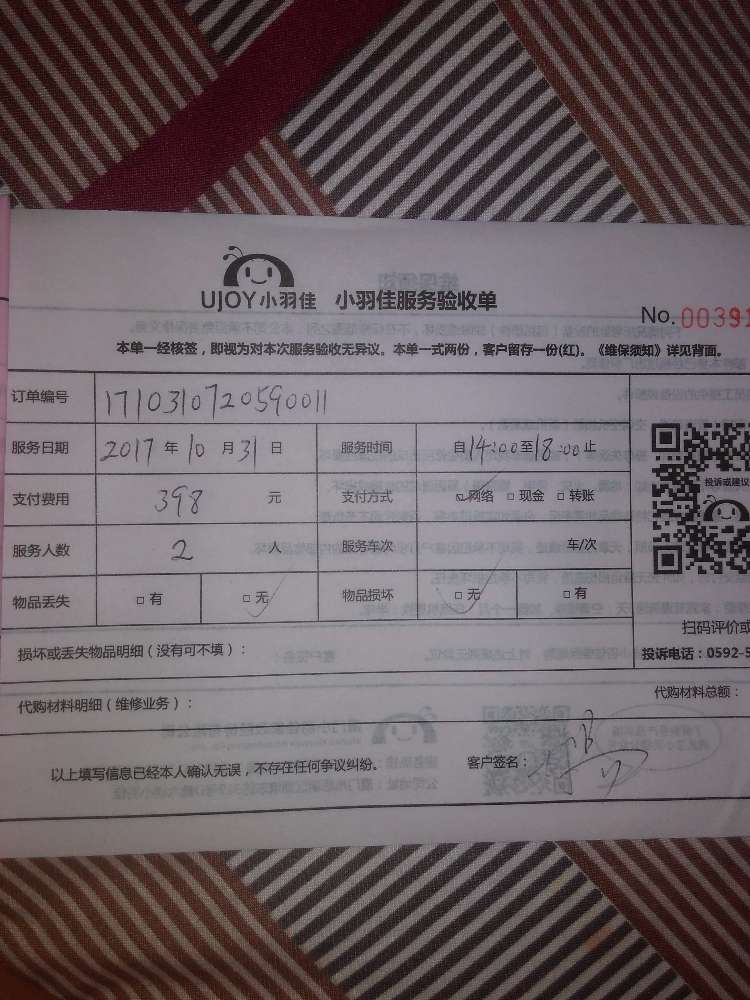 UJOY小羽佳 小羽佳服务验收单
No. 00391
本单一经核签，即视为对本次服务验收无异议。本单一式两份，客户留存一份(红)。《维保须知》详见背面。
订单编号 1710310720590011
服务日期 2017 年 10 月 31 日 服务时间 自14:00至18:00止
支付费用 398 元 支付方式 ☑网络 □现金 □转账
投诉或建议
服务人数 2 人 服务车次 车/次
物品丢失 □有 □无✓ 物品损坏 □无✓ □有
扫码评价或
损坏或丢失物品明细（没有可不填）：
投诉电话：0592-5
代购材料明细（维修业务）：
代购材料总额：
以上填写信息已经本人确认无误，不存在任何争议纠纷。 客户签名：